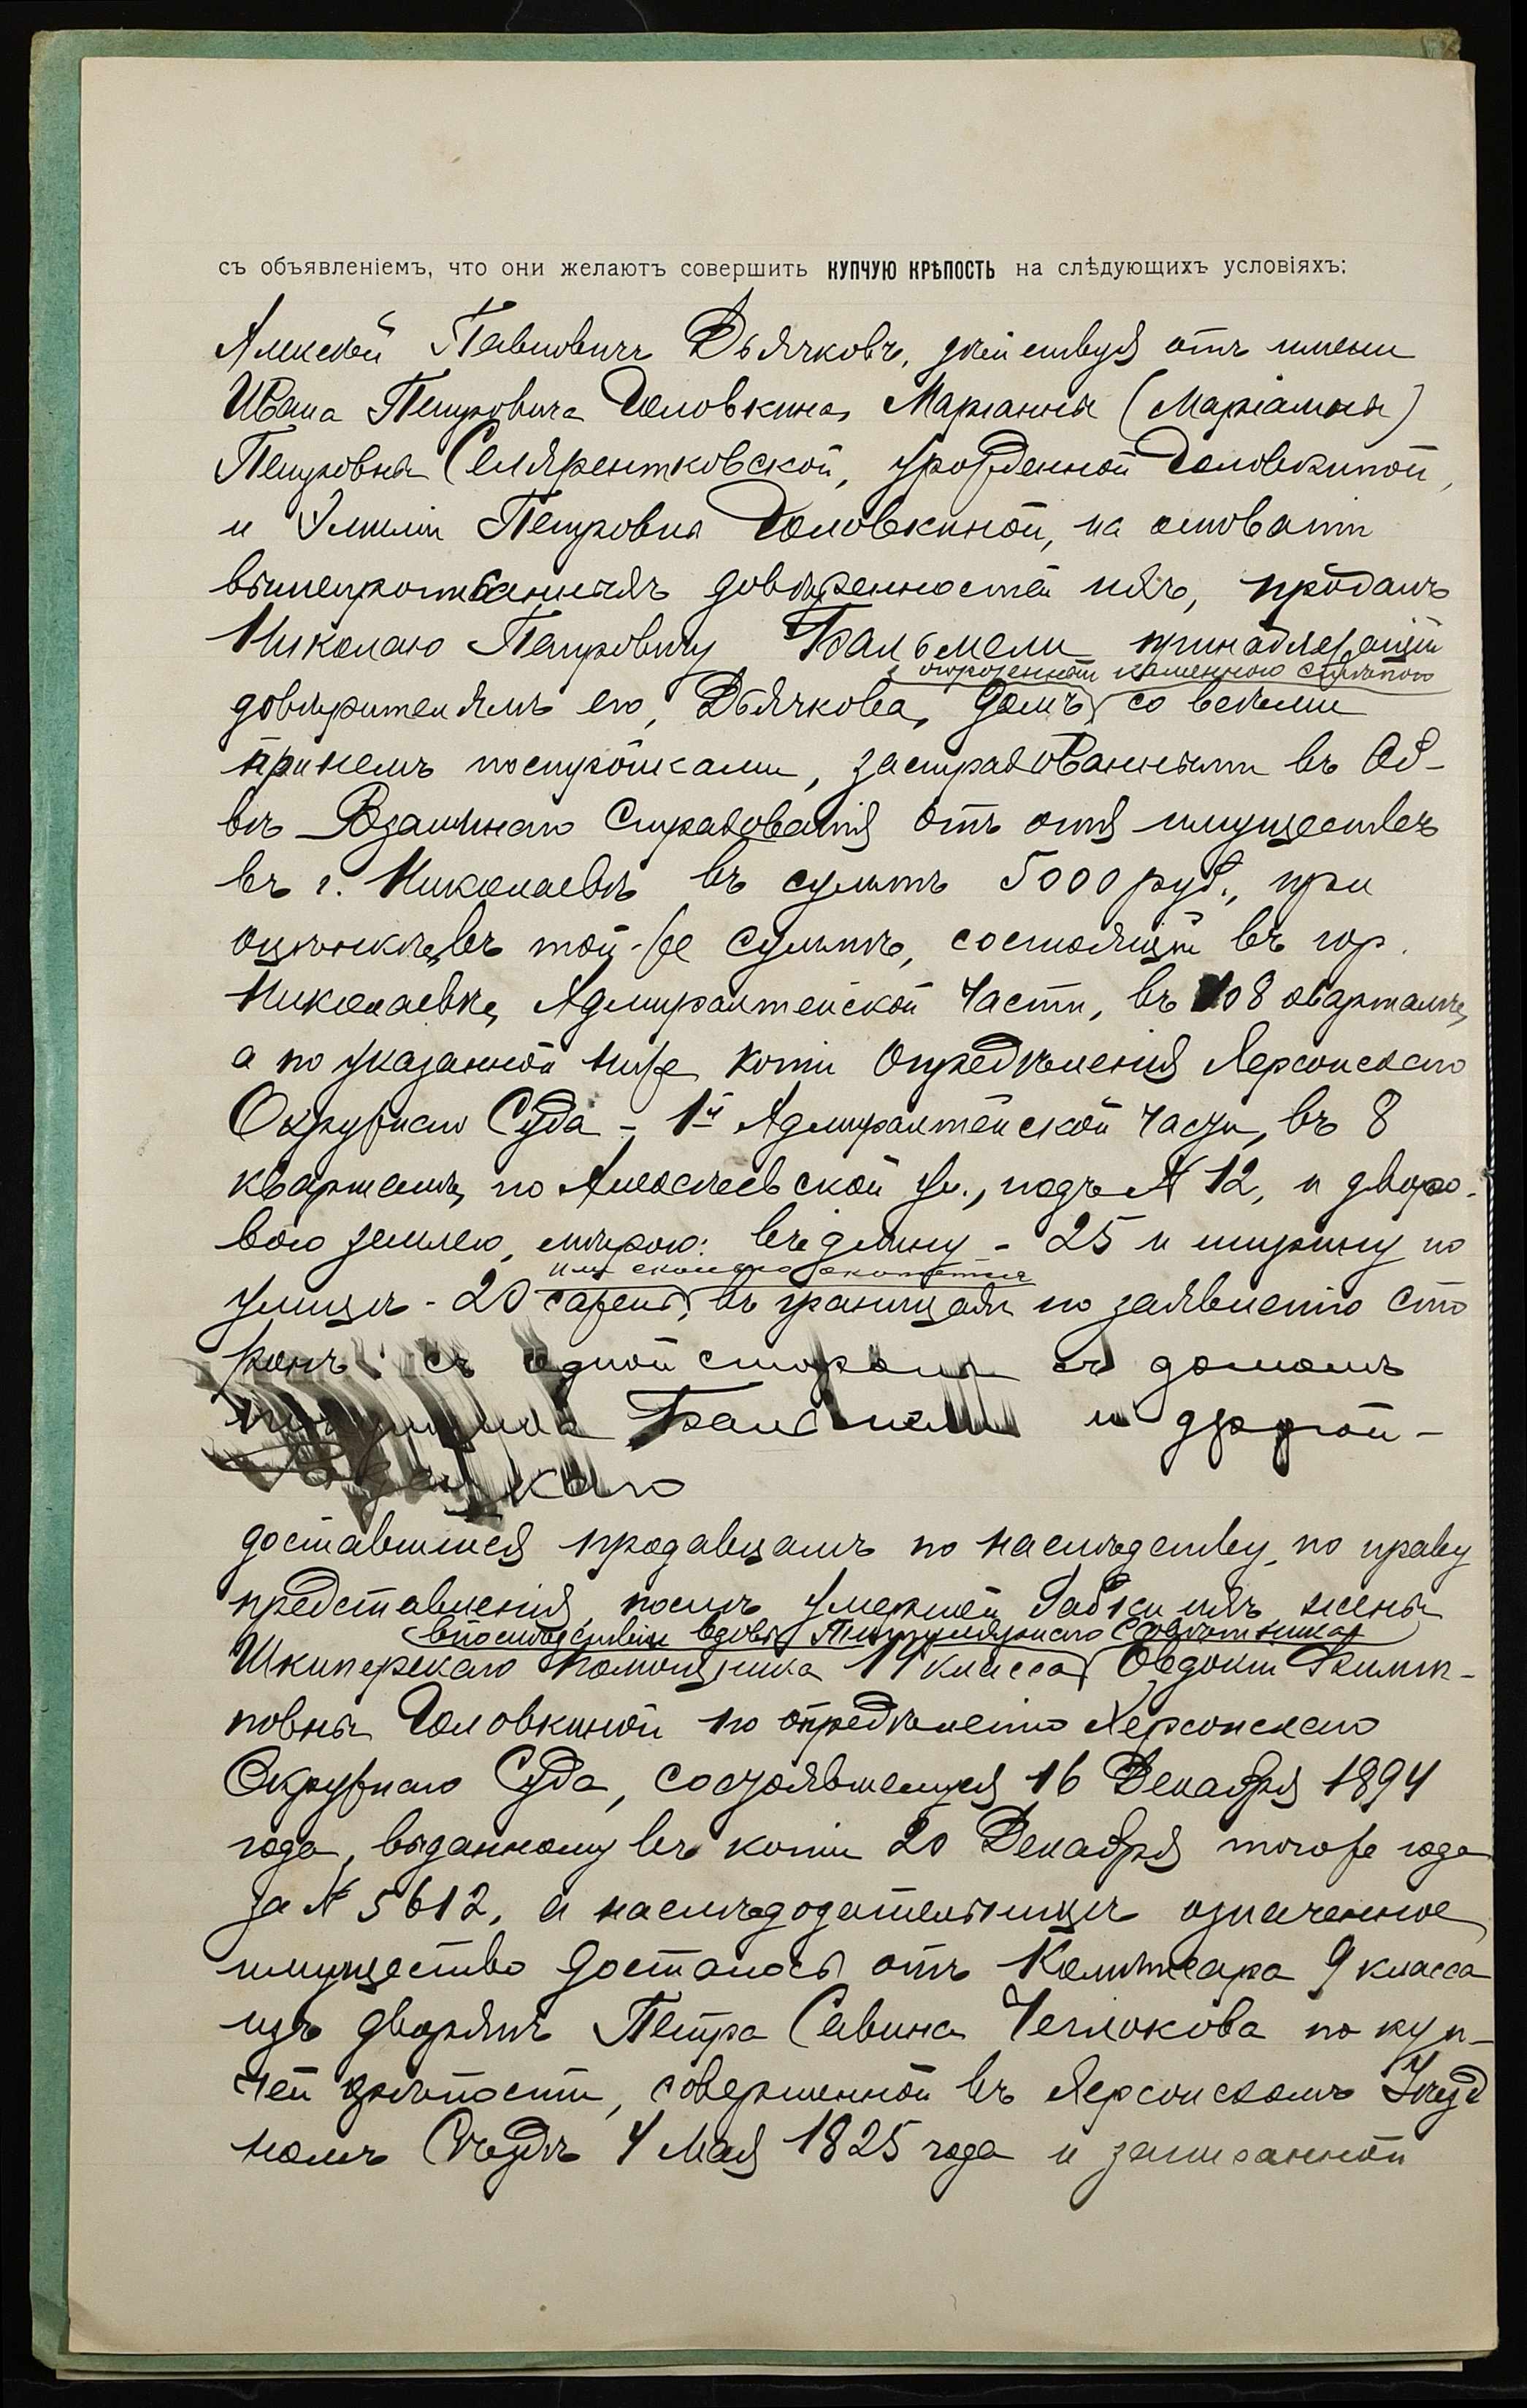 съ объявленіемъ, что они желаютъ совершить КУПЧУЮ КРѢПОСТЬ на слѣдующихъ условіяхъ:
Алексѣй Павловичъ Дьячковъ, дѣйствуя отъ имени
Ивана Петровича Головкина, Маріанны (Маріамны)
Петровны Селярентковской, урожденной Головкиной,
и Эмиліи Петровны Головкиной, на основаніи
вышепрописанныхъ довѣренностей ихъ, продалъ
Николаю Петровичу Бальмели принадлежащій
огороженный каменною стѣною
довѣрителямъ его, Дьячкова, домъ со всѣми
при немъ постройками, застрахованными въ Об-
вѣ Взаимнаго Страхованія отъ огня имуществъ
въ г. Николаевѣ въ суммѣ 5000 руб., при
оцѣнкѣ въ той-же суммѣ, состоящій въ гор.
Николаевѣ, Адмиралтейской части, въ 108 кварталѣ,
а по указанной ниже копіи Опредѣленія Херсонскаго
Окружнаго Суда - 1й Адмиралтейской части, въ 8
кварталѣ, по Алексѣевской ул., подъ № 12, и дворо-
вою землею, мѣрою: въ длину - 25 и ширину по
или сколько окажется
улицѣ - 20 сажень, въ границахъ по заявленію сто
ронъ: съ одной стороны съ домомъ
Бальмели и другой -
доставшійся продавцамъ по наслѣдству, по праву
представленія, послѣ умершей бабки ихъ, жены
впослѣдствіи вдовы Титулярнаго Совѣтника
Шкиперскаго помощника 14 класса Овдоти Филип-
повны Головкиной по опредѣленію Херсонскаго
Окружнаго Суда, состоявшемуся 16 Декабря 1894
года, выданному въ копіи 20 Декабря того же года
за № 5612, а наслѣдодательницѣ означенное
имущество досталось отъ Комиссара 9 класса
изъ дворянъ Петра Савина Чеглокова по куп-
чей крѣпости, совершенной въ Херсонскомъ Уѣзд
номъ Судѣ 4 Мая 1825 года и записанной